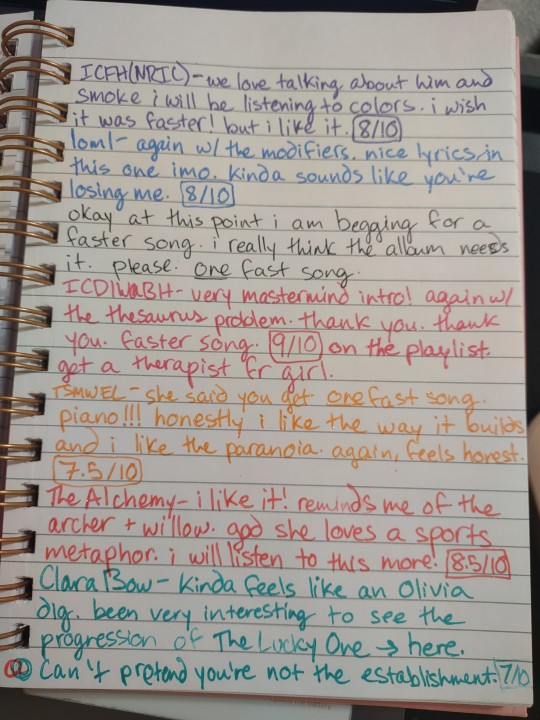 ICFH(NRIC)-we love talking about him and
smoke i will be listening to colors. i wish
it was faster! but i like it. 8/10
loml- again w/ the modifiers. nice lyrics in
this one imo. kinda sounds like you're
losing me. 8/10
okay at this point i am begging for a
faster song. i really think the album needs
it. please. one fast song.
ICDIWABH- very mastermind intro! again w/
the thesaurus problem. thank you. thank
you. faster song. 9/10 on the playlist.
get a therapist fr girl.
TSMWEL- she said you get one fast song.
piano!!! honestly i like the way it builds
and i like the paranoia. again, feels honest.
7.5/10
The Alchemy- i like it! reminds me of the
archer + willow. god she loves a sports
metaphor. i will listen to this more! 8.5/10
Clara Bow- kinda feels like an Olivia
dig. been very interesting to see the
progression of The Lucky One → here.
Can't pretend you're not the establishment. 7/10